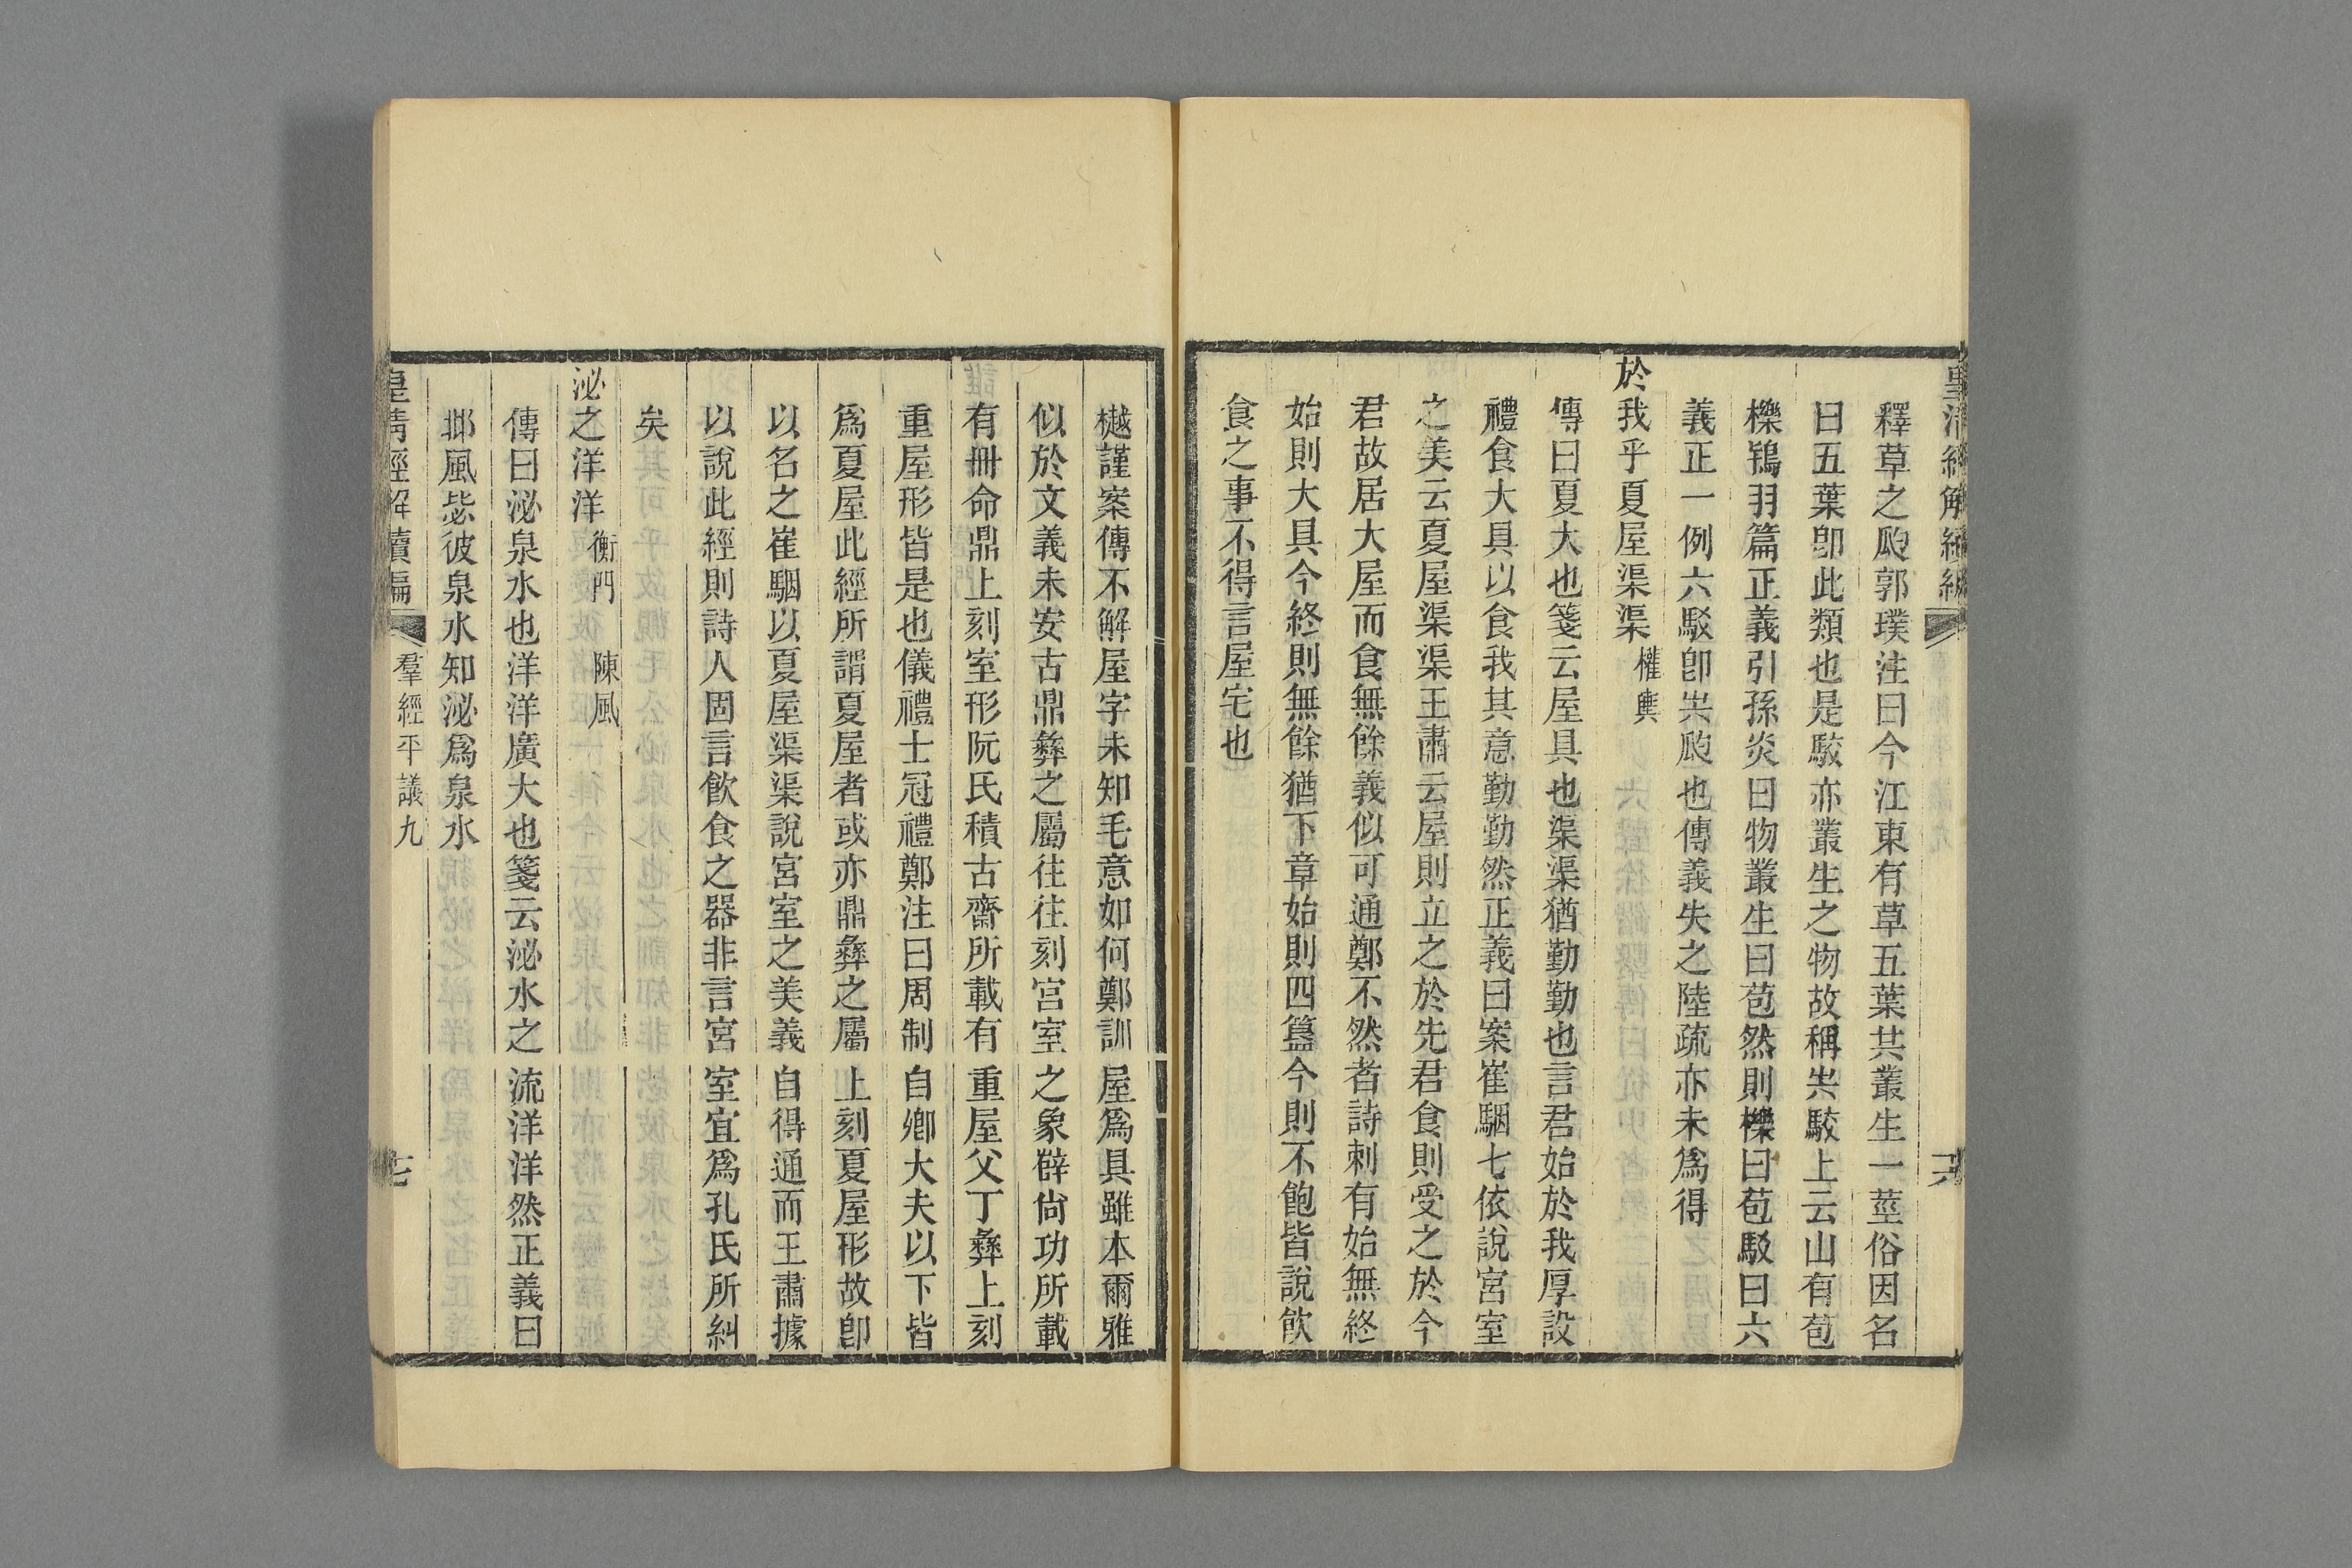 皇清經解續編
釋草之瓝郭璞注曰今江東有草五葉共叢生一莖俗因名
曰五葉卽此類也是駮亦叢生之物故稱共駮上云山有苞
櫟鴇羽篇正義引孫炎曰物叢生曰苞然則櫟曰苞駁曰六
義正一例六駁卽共瓝也傳義失之陸疏亦未爲得
於我乎夏屋渠渠 權輿
傳曰夏大也箋云屋具也渠渠猶勤勤也言君始於我厚設
禮食大具以食我其意勤勤然正義曰案崔駰七依說宮室
之美云夏屋渠渠王肅云屋則立之於先君食則受之於今
君故居大屋而食無餘義似可通鄭不然者詩刺有始無終
始則大具今終則無餘猶下章始則四簋今則不飽皆說飮
食之事不得言屋宅也
樾謹案傳不解屋字未知毛意如何鄭訓屋爲具雖本爾雅
似於文義未安古鼎彝之屬往往刻宮室之象薛尙功所載
有冊命鼎上刻室形阮氏積古齋所載有重屋父丁彝上刻
重屋形皆是也儀禮士冠禮鄭注曰周制自卿大夫以下皆
爲夏屋此經所謂夏屋者或亦鼎彝之屬上刻夏屋形故卽
以名之崔駰以夏屋渠渠說宮室之美義自得通而王肅據
以說此經則詩人固言飮食之器非言宮室宜爲孔氏所糾
矣
泌之洋洋 衡門 陳風
傳曰泌泉水也洋洋廣大也箋云泌水之流洋洋然正義曰
邶風毖彼泉水知泌爲泉水
皇清經解續編 羣經平議九 七